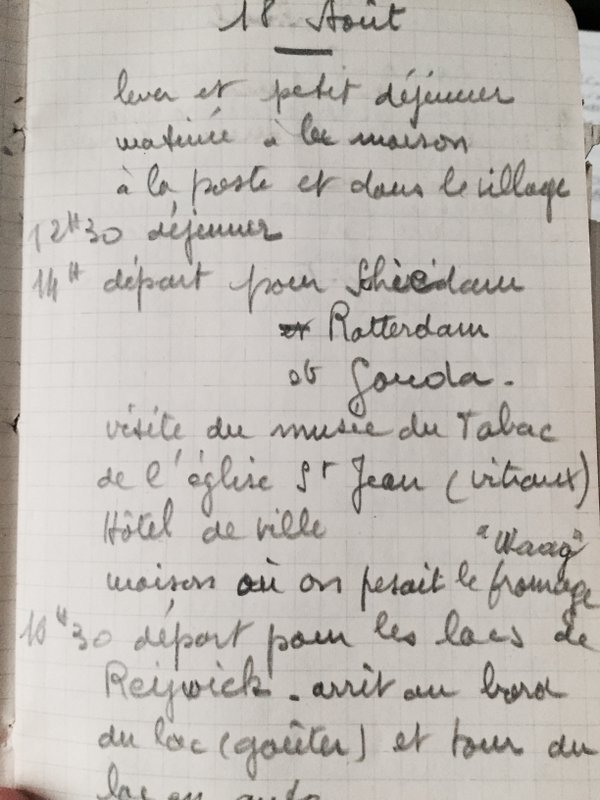 18 Août
lever et petit déjeuner
matinée à la maison
à la poste et dans le village
12H30 déjeuner
14H départ pour Schiedam
et Rotterdam
et Gouda.
visite du musée du Tabac
de l'église St Jean (vitraux)
Hôtel de ville
"Waag"
maison où on pesait le fromage
16H30 départ pour les lacs de
Reijwick. arrêt au bord
du lac (goûter) et tour du
lac en auto